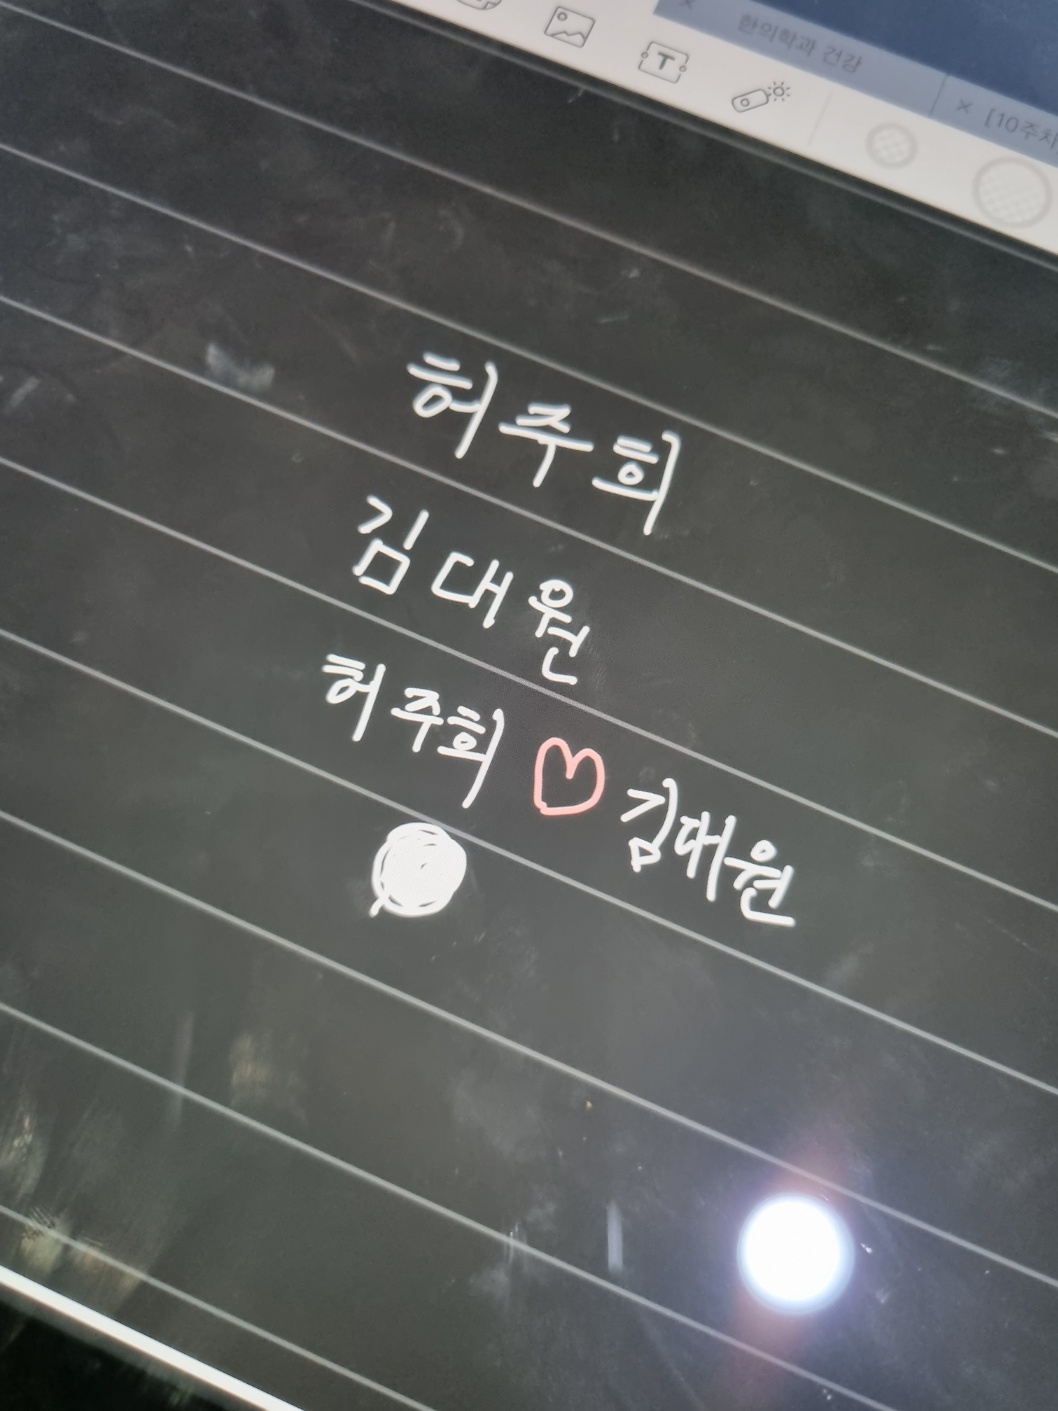 한의학과 건강
[10주차
허주희
김대원
허주희 ♡ 김대원